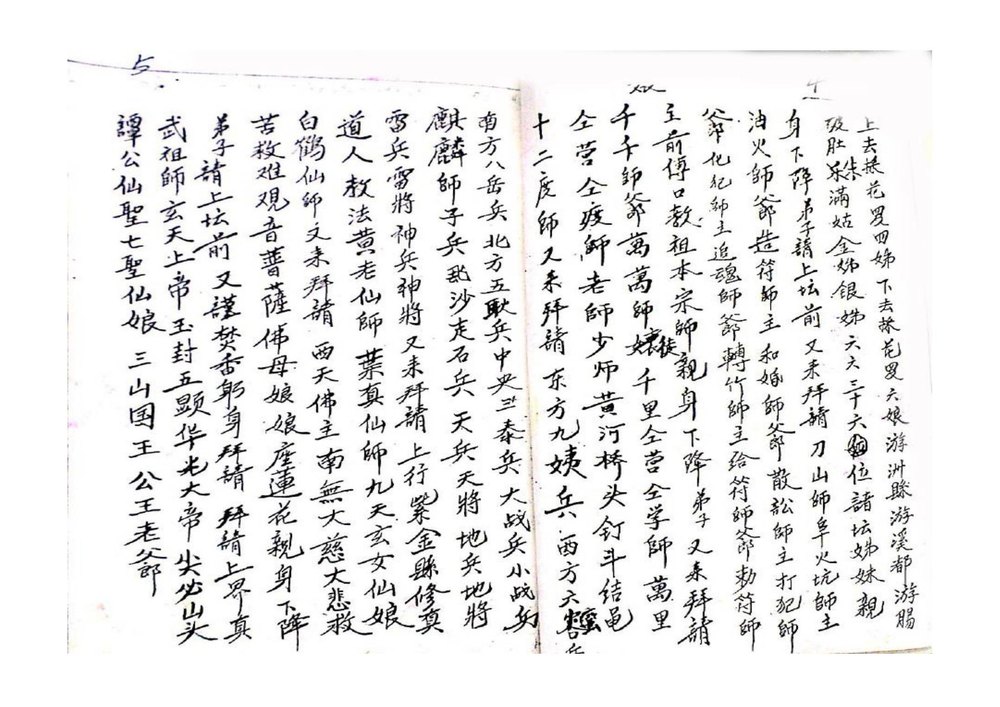 4
上去採花罗四姊下去採花罗六娘游洲縣游溪都游腸
级肚朱朵滿姑金姊銀姊六六三十六位諸坛姊妹親
身下降弟子請上坛前又来拜請刀山師阜火坑師主
油火師爺造符師主和婚師爺散訟師主打犯師
爺化犯師主追魂師爺轉竹師主給符師爺勅符師
主前傅口教祖本宗師親身下降弟子又来拜請
千千師爺萬萬師徒千里仝营仝学師萬里
仝营仝疫師老師少师黄河桥头钉斗结邑
十二度師又来拜請东方九姨兵西方六蛮兵
5
南方八岳兵北方五耿兵中央三泰兵大战兵小战兵
麒麟師子兵飛沙走石兵天兵天將地兵地將
雷兵雷將神兵神將又来拜請上行紫金縣修真
道人教法黄老仙師葉真仙師九天玄女仙娘
白鶴仙師又来拜請西天佛主南無大慈大悲救
苦救难观音菩薩佛母娘娘座蓮花親身下降
弟子請上坛前又謹焚香躬身拜請拜請上界真
武祖師玄天上帝玉封五顕华光大帝尖必山头
譚公仙聖七聖仙娘三山国王公王老爺